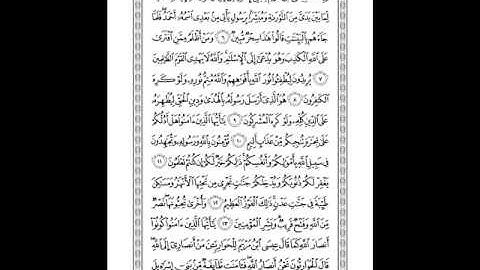 لِّمَا بَيْنَ يَدَىَّ مِنَ ٱلتَّوْرَىٰةِ وَمُبَشِّرًۢا بِرَسُولٍ يَأْتِى مِنۢ بَعْدِى ٱسْمُهُۥٓ أَحْمَدُ ۖ فَلَمَّا
جَآءَهُم بِٱلْبَيِّنَٰتِ قَالُوا۟ هَٰذَا سِحْرٌ مُّبِينٌ ٦ وَمَنْ أَظْلَمُ مِمَّنِ ٱفْتَرَىٰ
عَلَى ٱللَّهِ ٱلْكَذِبَ وَهُوَ يُدْعَىٰٓ إِلَى ٱلْإِسْلَٰمِ ۚ وَٱللَّهُ لَا يَهْدِى ٱلْقَوْمَ ٱلظَّٰلِمِينَ
٧ يُرِيدُونَ لِيُطْفِـُٔوا۟ نُورَ ٱللَّهِ بِأَفْوَٰهِهِمْ وَٱللَّهُ مُتِمُّ نُورِهِۦ وَلَوْ كَرِهَ
ٱلْكَٰفِرُونَ ٨ هُوَ ٱلَّذِىٓ أَرْسَلَ رَسُولَهُۥ بِٱلْهُدَىٰ وَدِينِ ٱلْحَقِّ لِيُظْهِرَهُۥ
عَلَى ٱلدِّينِ كُلِّهِۦ وَلَوْ كَرِهَ ٱلْمُشْرِكُونَ ٩ يَٰٓأَيُّهَا ٱلَّذِينَ ءَامَنُوا۟ هَلْ أَدُلُّكُمْ
عَلَىٰ تِجَٰرَةٍ تُنجِيكُم مِّنْ عَذَابٍ أَلِيمٍ ١٠ تُؤْمِنُونَ بِٱللَّهِ وَرَسُولِهِۦ وَتُجَٰهِدُونَ
فِى سَبِيلِ ٱللَّهِ بِأَمْوَٰلِكُمْ وَأَنفُسِكُمْ ۚ ذَٰلِكُمْ خَيْرٌ لَّكُمْ إِن كُنتُمْ تَعْلَمُونَ ١١
يَغْفِرْ لَكُمْ ذُنُوبَكُمْ وَيُدْخِلْكُمْ جَنَّٰتٍ تَجْرِى مِن تَحْتِهَا ٱلْأَنْهَٰرُ وَمَسَٰكِنَ
طَيِّبَةً فِى جَنَّٰتِ عَدْنٍ ۚ ذَٰلِكَ ٱلْفَوْزُ ٱلْعَظِيمُ ١٢ وَأُخْرَىٰ تُحِبُّونَهَا ۖ نَصْرٌ
مِّنَ ٱللَّهِ وَفَتْحٌ قَرِيبٌ ۗ وَبَشِّرِ ٱلْمُؤْمِنِينَ ١٣ يَٰٓأَيُّهَا ٱلَّذِينَ ءَامَنُوا۟ كُونُوٓا۟
أَنصَارَ ٱللَّهِ كَمَا قَالَ عِيسَى ٱبْنُ مَرْيَمَ لِلْحَوَارِيِّـۧنَ مَنْ أَنصَارِىٓ إِلَى ٱللَّهِ ۖ
قَالَ ٱلْحَوَارِيُّونَ نَحْنُ أَنصَارُ ٱللَّهِ ۖ فَـَٔامَنَت طَّآئِفَةٌ مِّنۢ بَنِىٓ إِسْرَٰٓءِيلَ